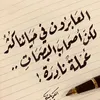 العابرون في حياتنا كُثر
لكنّ أصحاب البصمات ..
عملة نادرة !